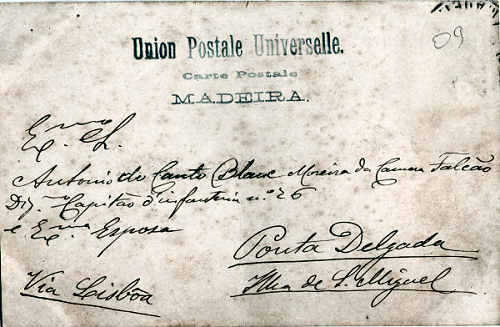 Union Postale Universelle.
Carte Postale
MADEIRA.
09
Ex.mo Sr.
Antonio do Canto Blanc Moreira da Camara Falcão
Dig.mo Capitão d'infanteria n.º 26
e Ex.ma Esposa
Ponta Delgada
Ilha de S. Miguel
Via Lisbôa